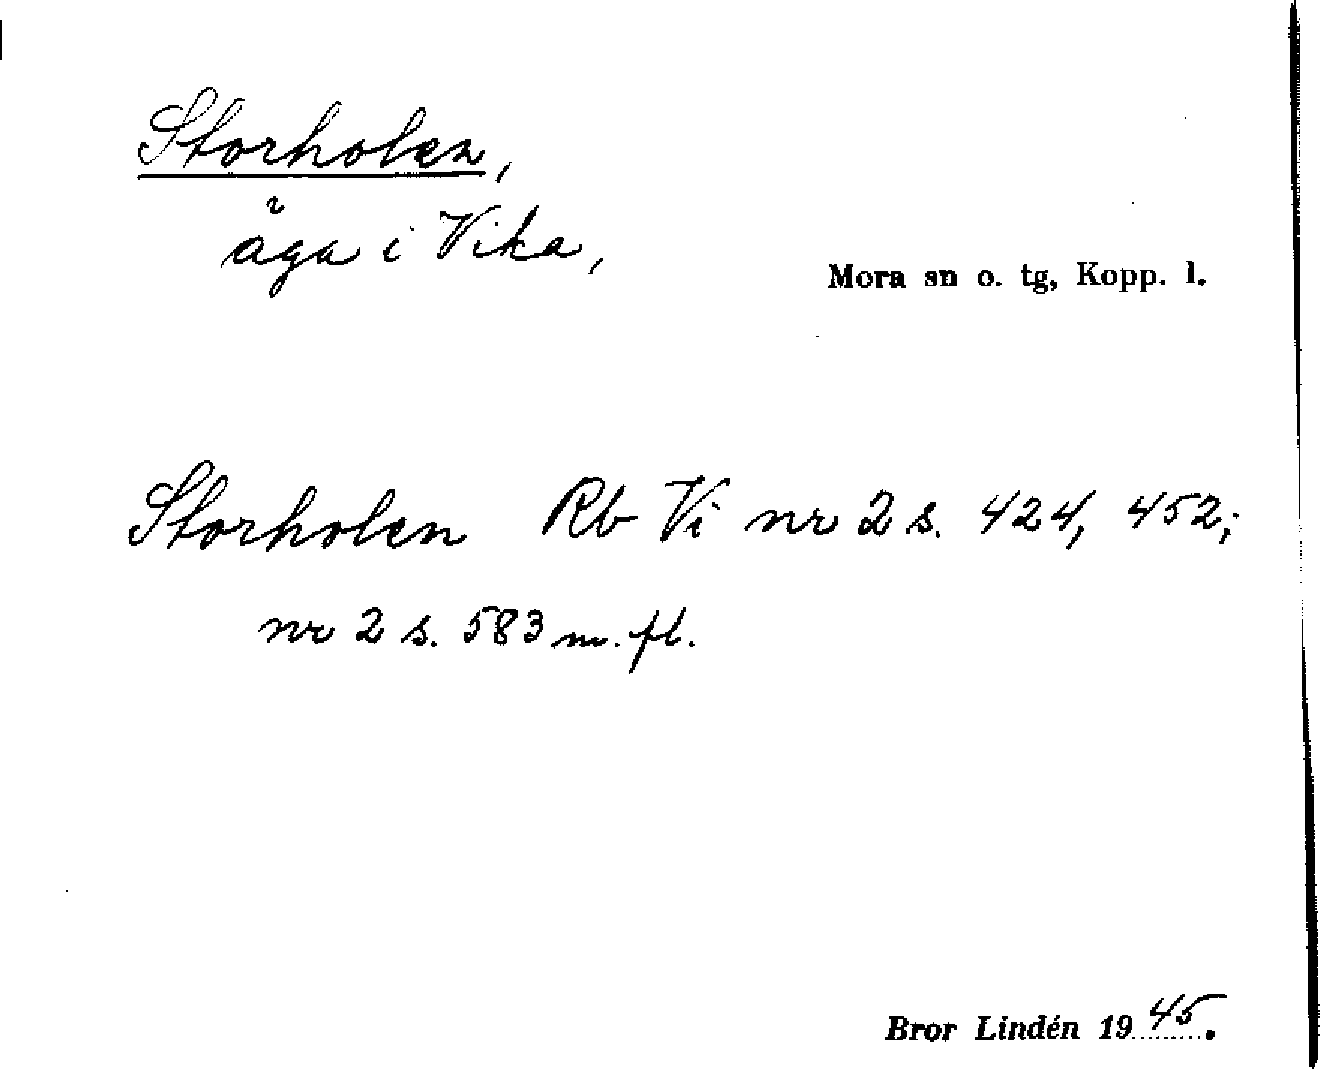 Storholen,
äga i Vika,
Mora sn o. tg, Kopp. l.
Storholen Rb Vi nr 2 s. 424, 452;
nr 2 s. 583 m. fl.
Bror Lindén 1945.